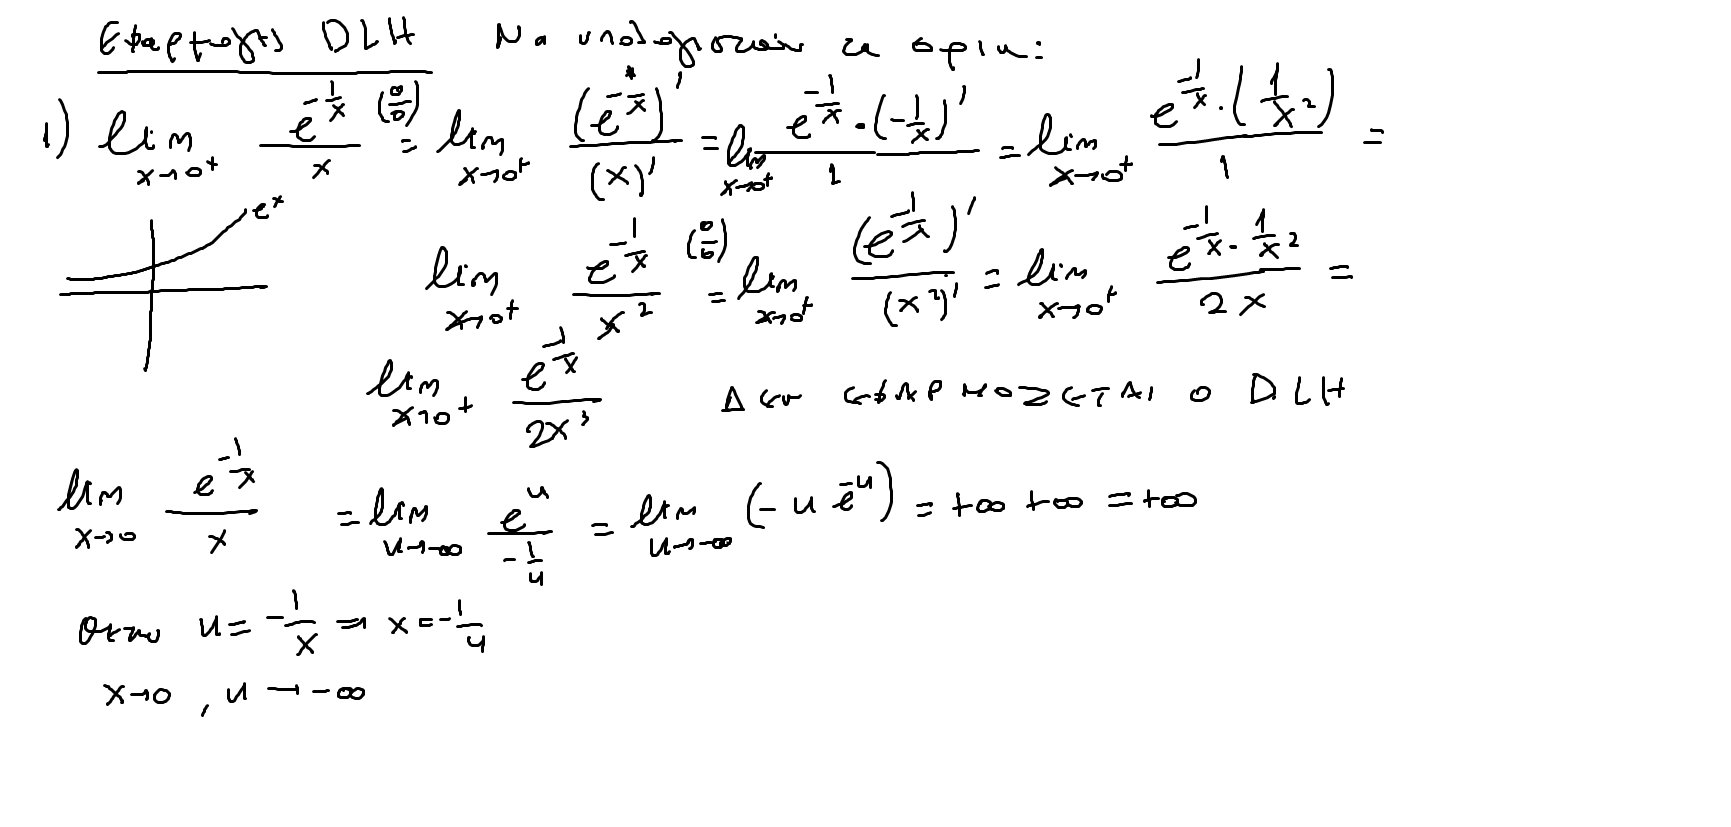 Εφαρμογές DLH Να υπολογιστούν τα όρια:
1) lim_{x→0⁺} e^{-1/x}/x (0/0) = lim_{x→0⁺} (e^{-1/x})'/(x)' = lim_{x→0⁺} e^{-1/x}·(-1/x)'/1 = lim_{x→0⁺} e^{-1/x}·(1/x²)/1 =
e^x
lim_{x→0⁺} e^{-1/x}/x² (0/0) = lim_{x→0⁺} (e^{-1/x})'/(x²)' = lim_{x→0⁺} e^{-1/x}·1/x²/2x =
lim_{x→0⁺} e^{-1/x}/2x³ Δεν ΕΦΑΡΜΟΖΕΤΑΙ ο DLH
lim_{x→0} e^{-1/x}/x = lim_{u→-∞} e^u/(-1/u) = lim_{u→-∞} (-u e^{-u}) = +∞ +∞ = +∞
Θετω u = -1/x ⇒ x = -1/u
x→0, u→-∞